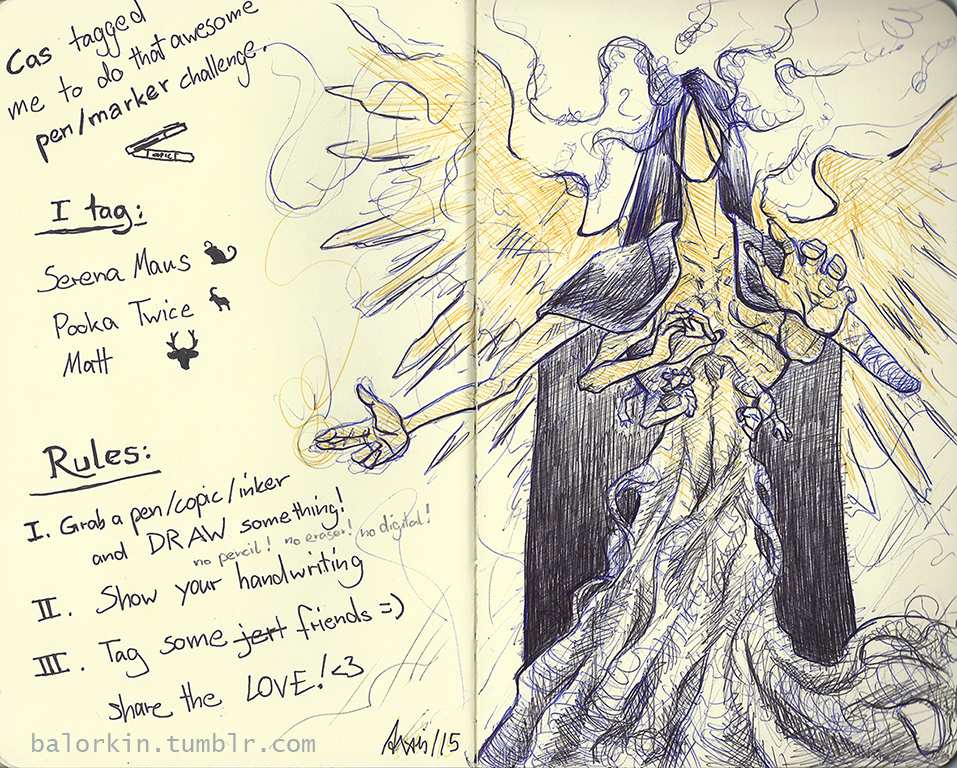 Cas tagged
me to do that awesome
pen/marker challenge.
COPIC
I tag:
Serena Maus
Pooka Twice
Matt
Rules:
I. Grab a pen/copic/inker
and DRAW something!
no pencil! no eraser! no digital!
II. Show your handwriting
III. Tag some jert friends =)
share the LOVE! <3
balorkin.tumblr.com
/15